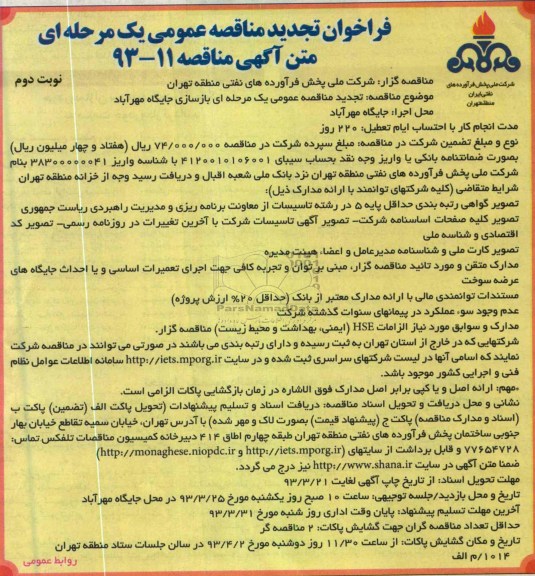 فراخوان تجدید مناقصه عمومی یک مرحله ای
متن آگهی مناقصه ۱۱-۹۳
شرکت ملی پخش فرآورده های
نفتی ایران
منطقه تهران
نوبت دوم
مناقصه گزار: شرکت ملی پخش فرآورده های نفتی منطقه تهران
موضوع مناقصه: تجدید مناقصه عمومی یک مرحله ای بازسازی جایگاه مهرآباد
محل اجرا: جایگاه مهرآباد
مدت انجام کار با احتساب ایام تعطیل: ۲۲۰ روز
نوع و مبلغ تضمین شرکت در مناقصه: مبلغ سپرده شرکت در مناقصه ۷۴/۰۰۰/۰۰۰ ریال (هفتاد و چهار میلیون ریال)
بصورت ضمانتنامه بانکی یا واریز وجه نقد بحساب سیبای ۴۱۲۰۰۱۰۱۰۶۰۰۱ با شناسه واریز ۳۸۳۰۰۰۰۰۰۴۱ بنام
شرکت ملی پخش فرآورده های نفتی منطقه تهران نزد بانک ملی شعبه اقبال و دریافت رسید وجه از خزانه منطقه تهران
شرایط متقاضی (کلیه شرکتهای توانمند با ارائه مدارک ذیل):
تصویر گواهی رتبه بندی حداقل پایه ۵ در رشته تاسیسات از معاونت برنامه ریزی و مدیریت راهبردی ریاست جمهوری
تصویر کلیه صفحات اساسنامه شرکت- تصویر آگهی تاسیسات شرکت با آخرین تغییرات در روزنامه رسمی- تصویر کد
اقتصادی و شناسه ملی
تصویر کارت ملی و شناسنامه مدیرعامل و اعضاء هیئت مدیره
مدارک متقن و مورد تائید مناقصه گزار، مبنی بر توان و تجربه کافی جهت اجرای تعمیرات اساسی و یا احداث جایگاه های
عرضه سوخت
مستندات توانمندی مالی با ارائه مدارک معتبر از بانک (حداقل ۲۰% ارزش پروژه)
عدم وجود سوء عملکرد در پیمانهای سنوات گذشته شرکت
مدارک و سوابق مورد نیاز الزامات HSE (ایمنی، بهداشت و محیط زیست) مناقصه گزار.
شرکتهایی که در خارج از استان تهران به ثبت رسیده و دارای رتبه بندی می باشند در صورتی می توانند در مناقصه شرکت
نمایند که اسامی آنها در لیست شرکتهای سراسری ثبت شده و در سایت http://iets.mporg.ir سامانه اطلاعات عوامل نظام
فنی و اجرایی کشور موجود باشد.
*مهم: ارائه اصل و یا کپی برابر اصل مدارک فوق الاشاره در زمان بازگشایی پاکات الزامی است.
نشانی و محل دریافت و تحویل اسناد مناقصه: دریافت اسناد و تسلیم پیشنهادات (تحویل پاکت الف (تضمین) پاکت ب
(اسناد و مدارک مناقصه) پاکت ج (پیشنهاد قیمت) بصورت لاک و مهر شده) با آدرس تهران، خیابان سمیه تقاطع خیابان بهار
جنوبی ساختمان پخش فرآورده های نفتی منطقه تهران طبقه چهارم اطاق ۴۱۴ دبیرخانه کمیسیون مناقصات تلفکس تماس:
۷۷۶۵۴۷۲۸ و قابل برداشت از سایتهای (http://iets.mporg.ir و http://monaghese.niopdc.ir)
ضمنا متن آگهی در سایت http://www.shana.ir نیز درج می گردد.
مهلت تحویل اسناد: از تاریخ چاپ آگهی لغایت ۹۳/۳/۲۱
تاریخ و محل بازدید/جلسه توجیهی: ساعت ۱۰ صبح روز یکشنبه مورخ ۹۳/۳/۲۵ در محل جایگاه مهرآباد
آخرین مهلت تسلیم پیشنهاد: پایان وقت اداری روز شنبه مورخ ۹۳/۳/۳۱
حداقل تعداد مناقصه گران جهت گشایش پاکات: ۲ مناقصه گر
تاریخ و مکان گشایش پاکات: از ساعت ۱۱/۳۰ روز دوشنبه مورخ ۹۳/۴/۲ در سالن جلسات ستاد منطقه تهران
۱۰۱۴/م الف
روابط عمومی